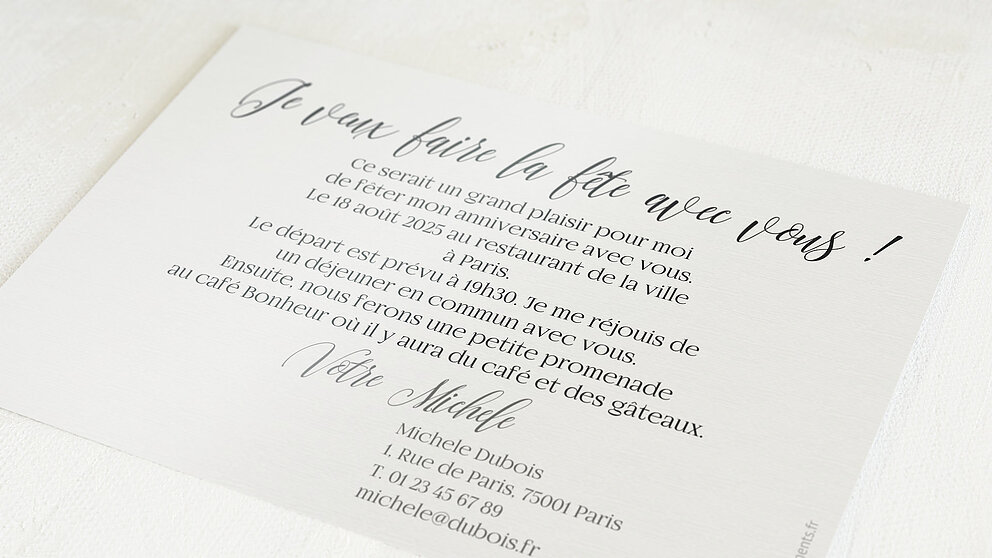 Je veux faire la fête avec vous !
Ce serait un grand plaisir pour moi
de fêter mon anniversaire avec vous.
Le 18 août 2025 au restaurant de la ville
à Paris.
Le départ est prévu à 19h30. Je me réjouis de
un déjeuner en commun avec vous.
Ensuite, nous ferons une petite promenade
au café Bonheur où il y aura du café et des gâteaux.
Votre Michele
Michele Dubois
1, Rue de Paris, 75001 Paris
T. 01 23 45 67 89
michele@dubois.fr